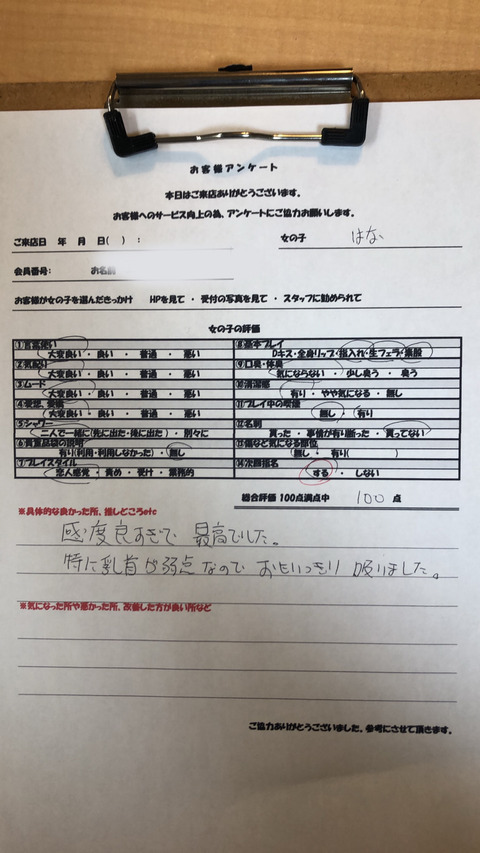 お客様アンケート
本日はご来店ありがとうございます。
お客様へのサービス向上の為、アンケートにご協力お願いします。
ご来店日 年 月 日( ) : 女の子 はな
会員番号: お名前
お客様が女の子を選んだきっかけ HPを見て ・ 受付の写真を見て ・ スタッフに勧められて
女の子の評価
①言葉使い ⑧基本プレイ
大変良い ・ 良い ・ 普通 ・ 悪い Dキス・全身リップ・指入れ・生フェラ・素股
②気配り ⑨口臭・体臭
大変良い ・ 良い ・ 普通 ・ 悪い 気にならない ・ 少し臭う ・ 臭う
③ムード ⑩清潔感
大変良い ・ 良い ・ 普通 ・ 悪い 有り ・ やや気になる ・ 無し
④愛想、愛嬌 ⑪プレイ中の喫煙
大変良い ・ 良い ・ 普通 ・ 悪い 無し ・ 有り
⑤シャワー ⑫名刺
二人で一緒に(先に出た・後に出た) ・ 別々に 貰った ・ 事情が有り断った ・ 貰ってない
⑥貴重品袋の説明 ⑬傷など気になる部位
有り(利用・利用しなかった) ・ 無し 無し ・ 有り( )
⑦プレイスタイル ⑭次回指名
恋人感覚 ・ 責め ・ 受け ・ 業務的 する ・ しない
総合評価 100点満点中 100 点
※具体的な良かった所、推しどころetc
感度良すぎで 最高でした。
特に乳首が弱点なので おもいっきり 吸いました。
※気になった所や悪かった所、改善した方が良い所など
ご協力ありがとうございました。参考にさせて頂きます。